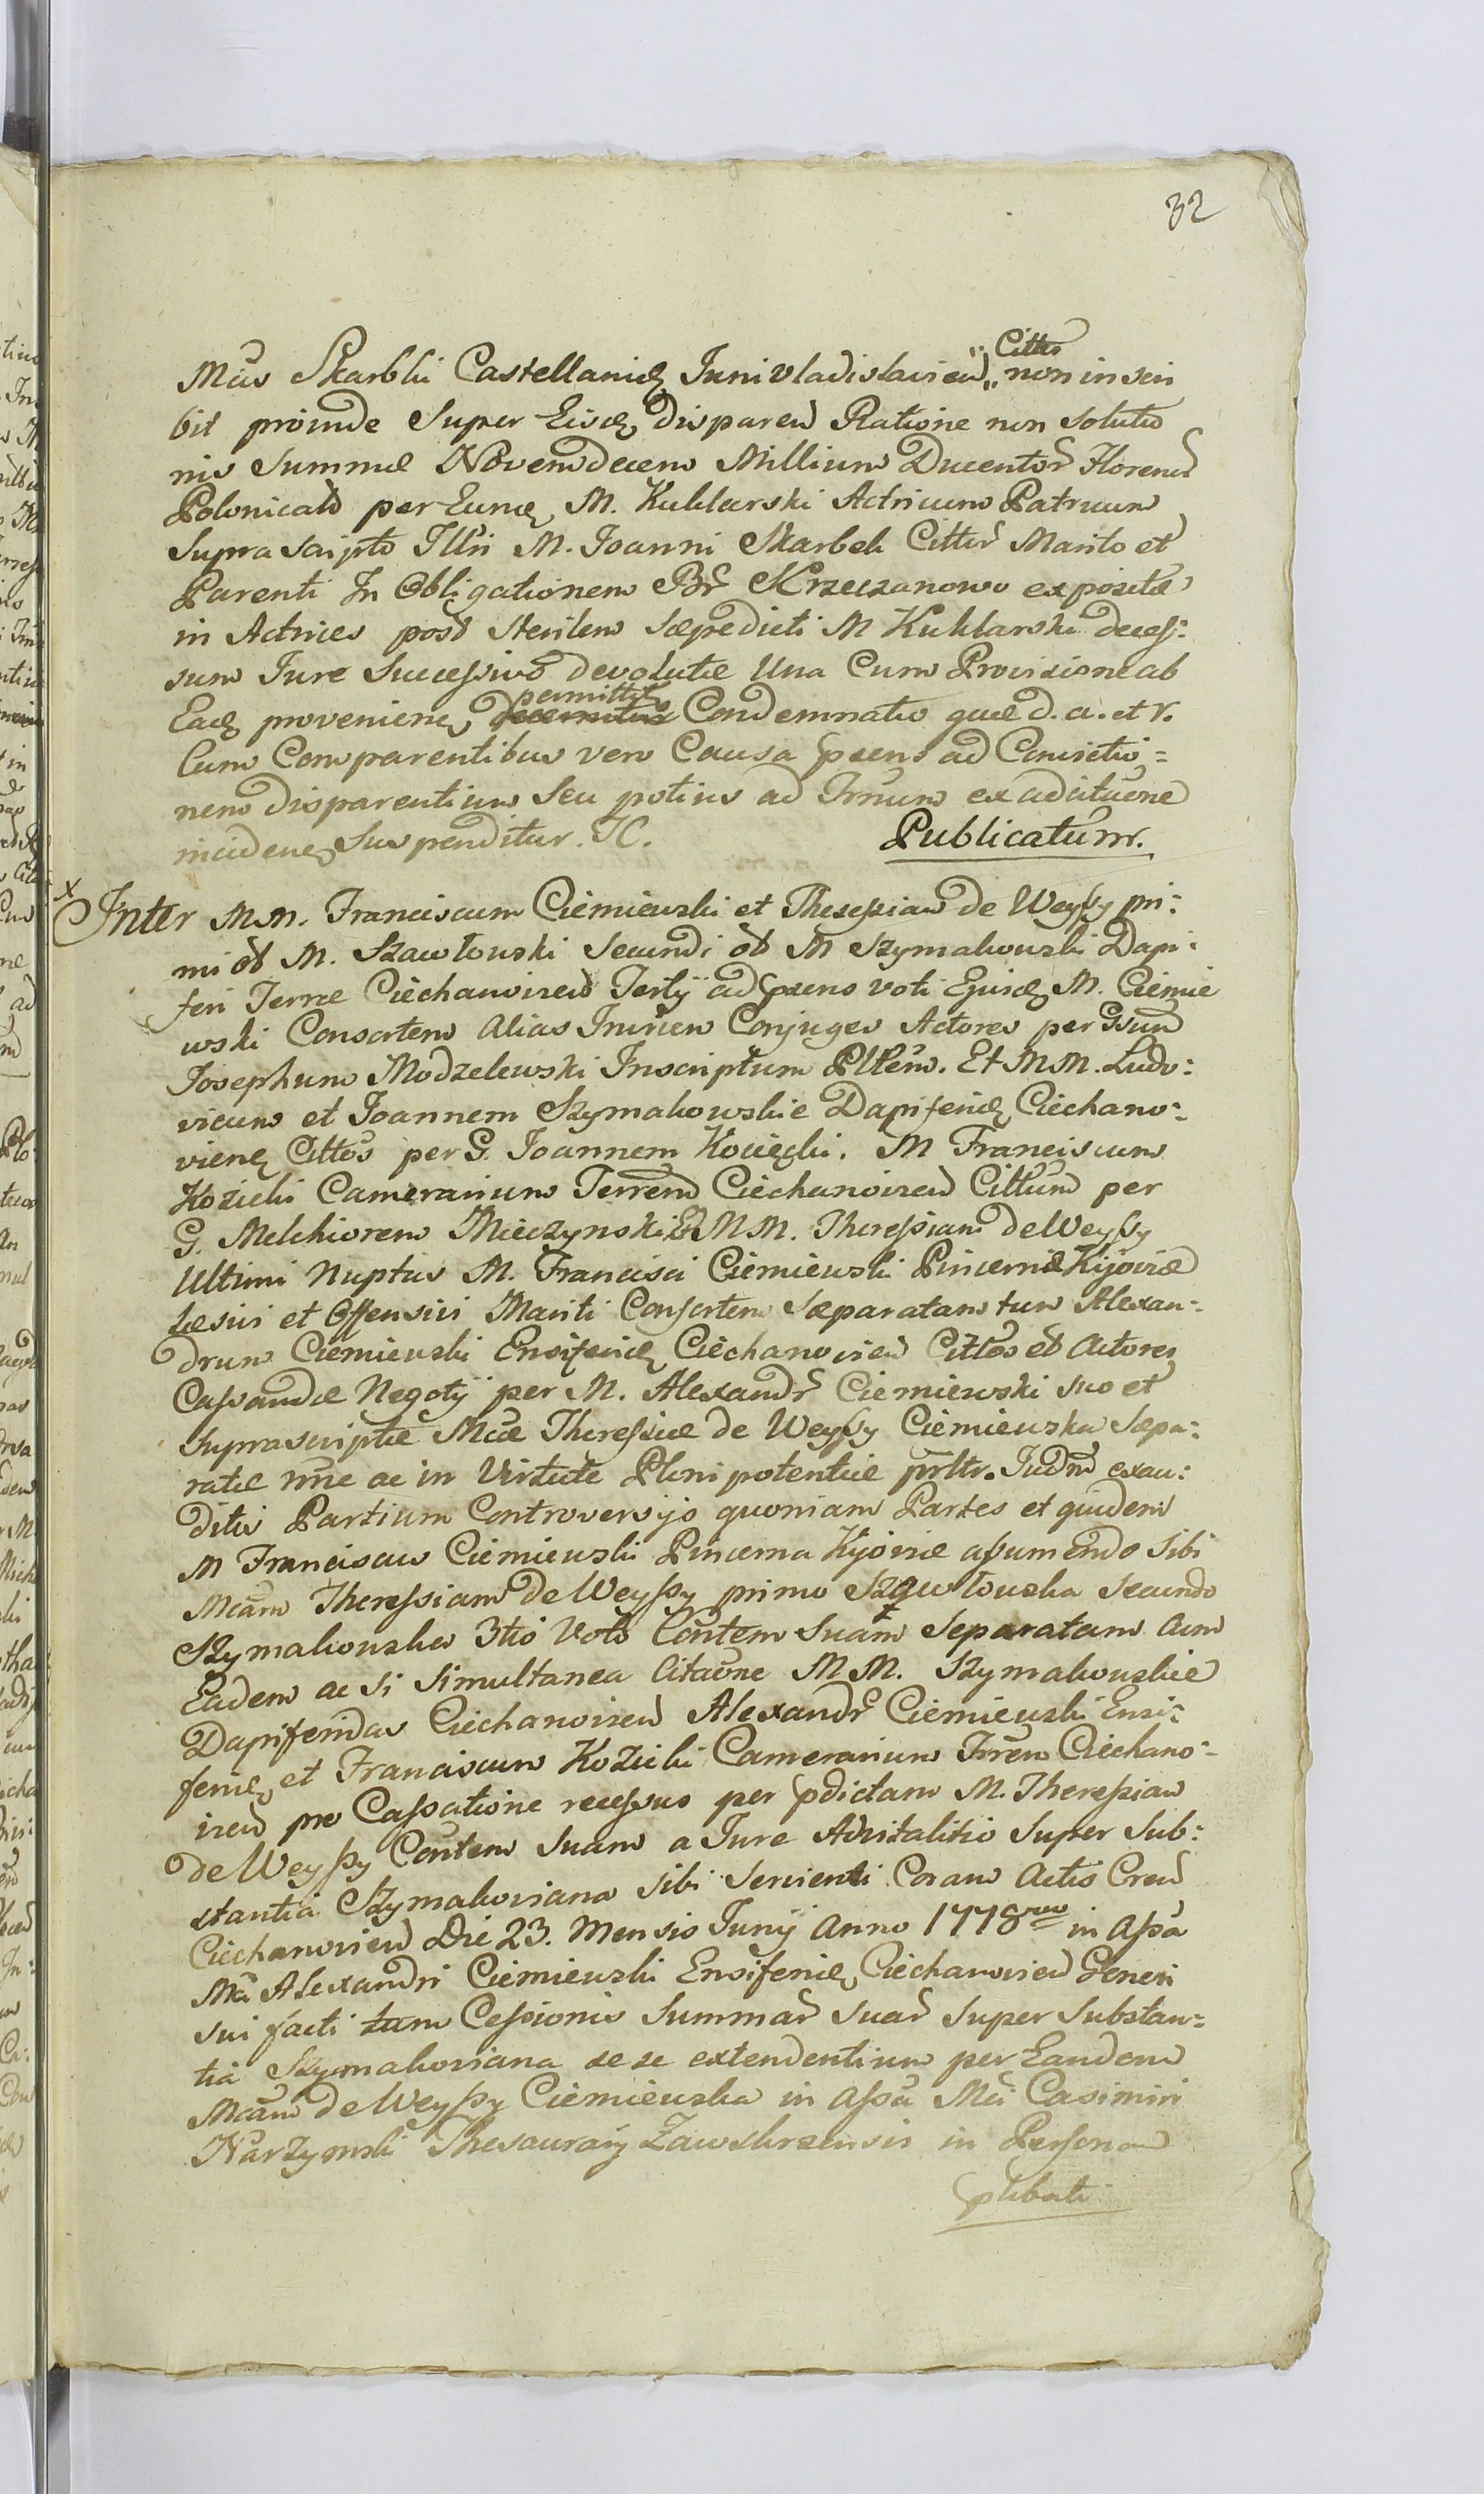 32
Mcus Skarbki Castellanidę Junivladislavien Cittus non inscri
bit proinde Super Eisdę disparen Ratione non solutio
nis Summæ Novemdecem Millium Ducentor Floren
Polonicał per Eundę M. Kuklarski Actricum Patruum
Supra scripto Illri M. Joanni Skarbek Cittar Marito et
Parenti In Obligationem Br Krzeczanowo expositæ
in Actrices post sterilem sæpedicti M Kuklarski deces:
sum Jure Successivo devolutæ Una Cum Provisione ab
Eadę provenienę permittit decernitur Condemnatio quæ d. a. et r.
Cum Comparentibus vero Causa pñens ad Convictio=
nem disparentium seu potius ad Trnum ex adcitaõne
incidenę Suspenditur. K.
Publicatum.
x Inter MM. Franciscum Ciemiewski et Theressiam de Weyssy pri:
mi ot M. Szawłowski Secundi ot M Szymakowski Dapi:
feri Terræ Ciechanovien Tertij ad pñens voti Ejusdę M. Ciemie
wski Consortem alias Invicem Conjuges Actores per Gsum
Josephum Modzelewski Inscriptum Plten. Et MM. Ludo:
vicum et Joannem Szymakowskie Dapiferidę Ciechano=
vienę Cittos per G. Joannem Kocięcki. M Franciscum
Kozicki Camerarium Terren Ciechanovien Cittum per
G. Melchiorem Mieczynski Et MM. Theressiam de Weyssy
Ultimi Nuptus M. Francisci Ciemiewski Pincernæ Kijoviæ
Læsivi et Offensivi Mariti Consortem Separatam tum Alexan=
drum Ciemiewski Ensiferidę Ciechanovien Cittos et Actores
Cassandæ Negotij per M. Alexandr Ciemiewski suo et
Suprascriptæ Mcæ Theressiæ de Weyssy Ciemiewska Sepa:
ratæ nne ac in Virtute Plenipotentiæ prltr. Judm exau:
ditis Partium Controversijs quoniam Partes et quidem
M Franciscus Ciemiewski Pincerna Kijoviæ assumendo sibi
Mcam Theressiam de Weyssy primo Szawłouska Secundo
Szymakouska 3tio Voto Contem Suam Separatam cum
Eadem ac si Simultanea Citaõne MM. Szymakouskie
Dapiferidas Ciechanovien Alexandr Ciemiewski Ensi:
feridę et Franciscum Kozicki Camerarium Trren Ciechano=
vien pro Cassatione recessus per pdictam M. Theressiam
de Weyssy Contem Suam a Jure Advitalitio Super Sub:
stantia Szymakoviana sibi Servienti Coram Actis Cren
Ciechanovien Die 23. Mensis Junij Anno 1778 in Assa
Mci Alexandri Ciemiewski Ensiferidę Ciechanovien Generi
sui facti tum Cessionis Summar Suar Super Substan=
tia Szymakoviana se se extendentium per Eandem
Mcam de Weyssy Ciemiewska in Assa Mci Casimiri
Narzymski Thesaurarij Zawskrzensis in Personam
plibati